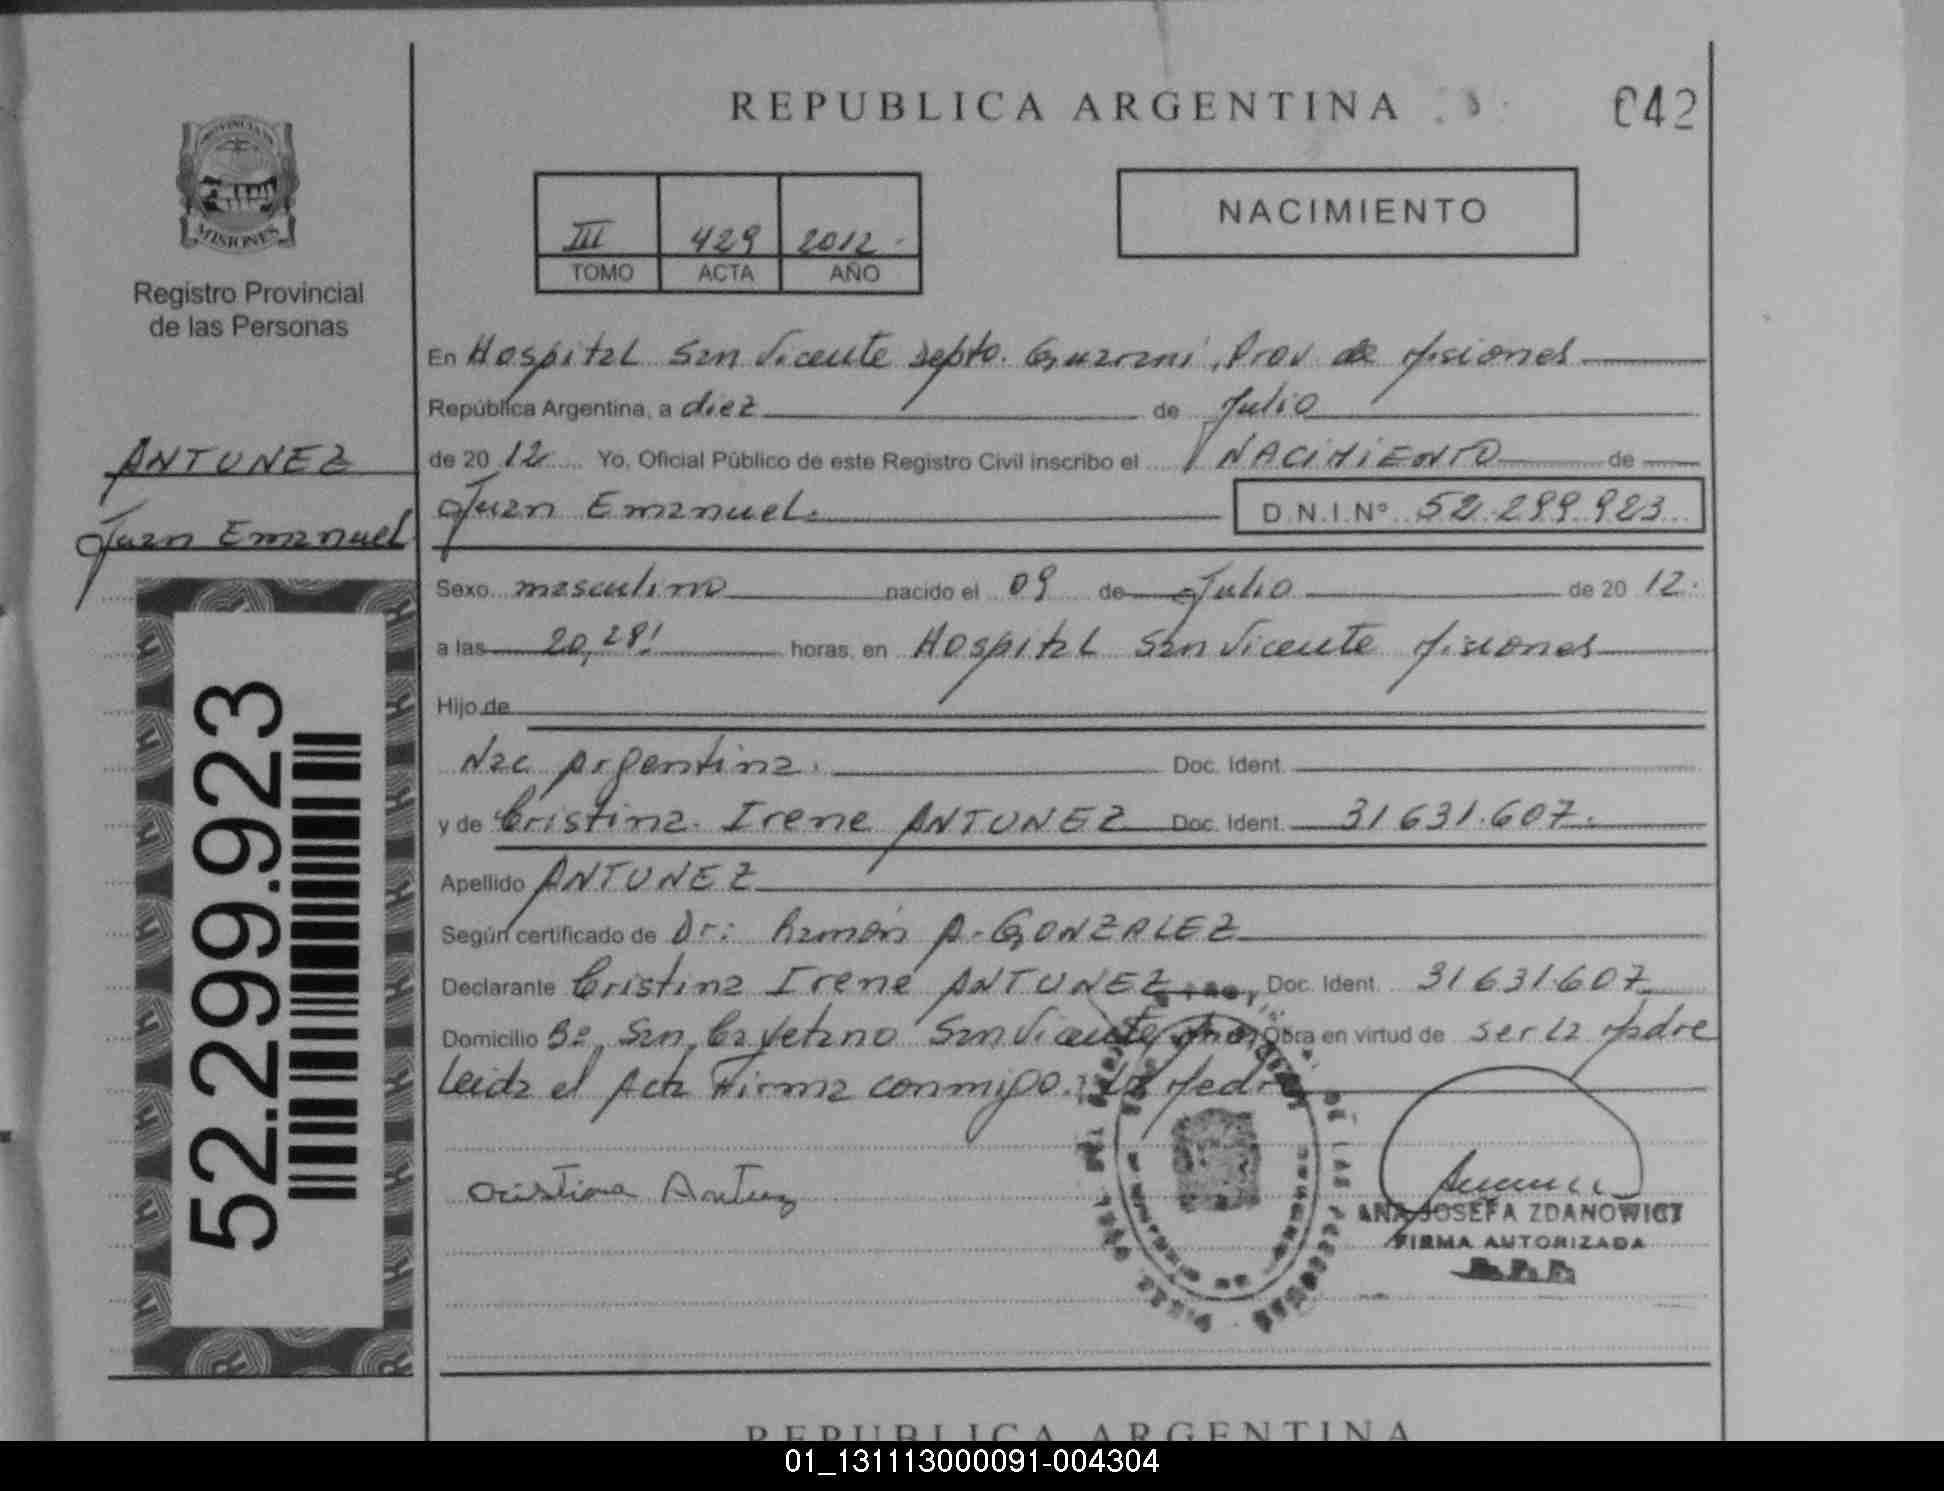 REPUBLICA ARGENTINA
042
PROVINCIA DE
MISIONES
Registro Provincial
de las Personas
III 429 2012.
TOMO ACTA AÑO
NACIMIENTO
En Hospital San Vicente Depto. Guaraní, Prov de Misiones
República Argentina, a diez de Julio
de 20 12 Yo, Oficial Público de este Registro Civil inscribo el NACIMIENTO de
Juan Emanuel. D.N.I.Nº 52.299.923
ANTUNEZ
Juan Emanuel
52.299.923
Sexo masculino nacido el 09 de Julio de 20 12.
a las 20,28! horas, en Hospital San Vicente Misiones
Hijo de
Nac Argentina. Doc. Ident.
y de Cristina Irene ANTUNEZ Doc. Ident. 31631.607.
Apellido ANTUNEZ
Según certificado de Dr: Ramón A. GONZALEZ
Declarante Cristina Irene ANTUNEZ Doc. Ident. 31631.607
Domicilio Bº San Cayetano San Vicente Obra en virtud de ser la Madre
Leida el Acta Firma conmigo: La Madre
DE LAS PERSONAS
ANA JOSEFA ZDANOWICZ
FIRMA AUTORIZADA
REPUBLICA ARGENTINA
01_131113000091-004304